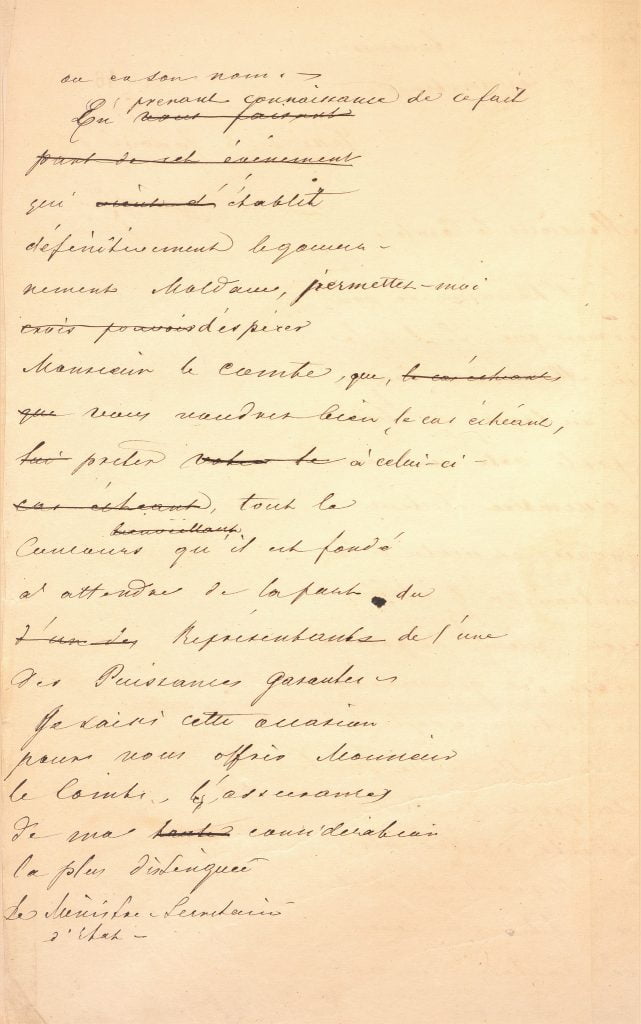 ou en son nom. –
prenant connaissance de ce fait
En vous faisant
part de cet évènement
qui vient d'établir
définitivement le gouver-
nement Moldave, permettez-moi
crois pouvoir d'espérer
Monsieur le Comte, que, le cas échéant
que vous voudrez bien, le cas échéant,
lui prêter votre le à celui-ci –
cas échéant, tout le
bienveillant
Concours qu'il est fondé
à attendre de la part du
d'un des Représentants de l'une
des Puissances garantes
Je saisis cette occasion
pour vous offrir Monsieur
le Comte, l'assurance
de ma haute considération
la plus distinguée
Le Ministre Secrétaire
d'Etat –